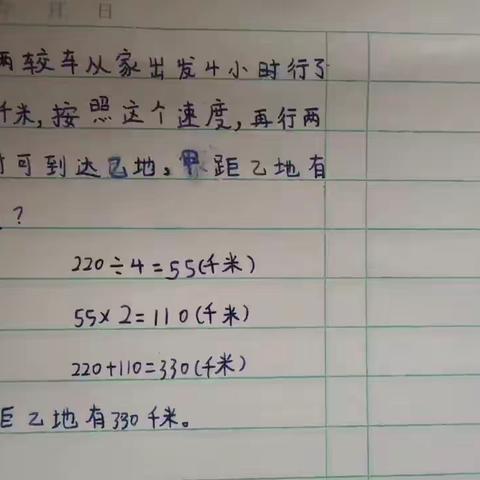 月 日
两较车从家出发4小时行了
千米,按照这个速度,再行两
时可到达乙地,距乙地有
?
220÷4=55(千米)
55×2=110(千米)
220+110=330(千米)
距乙地有330千米。